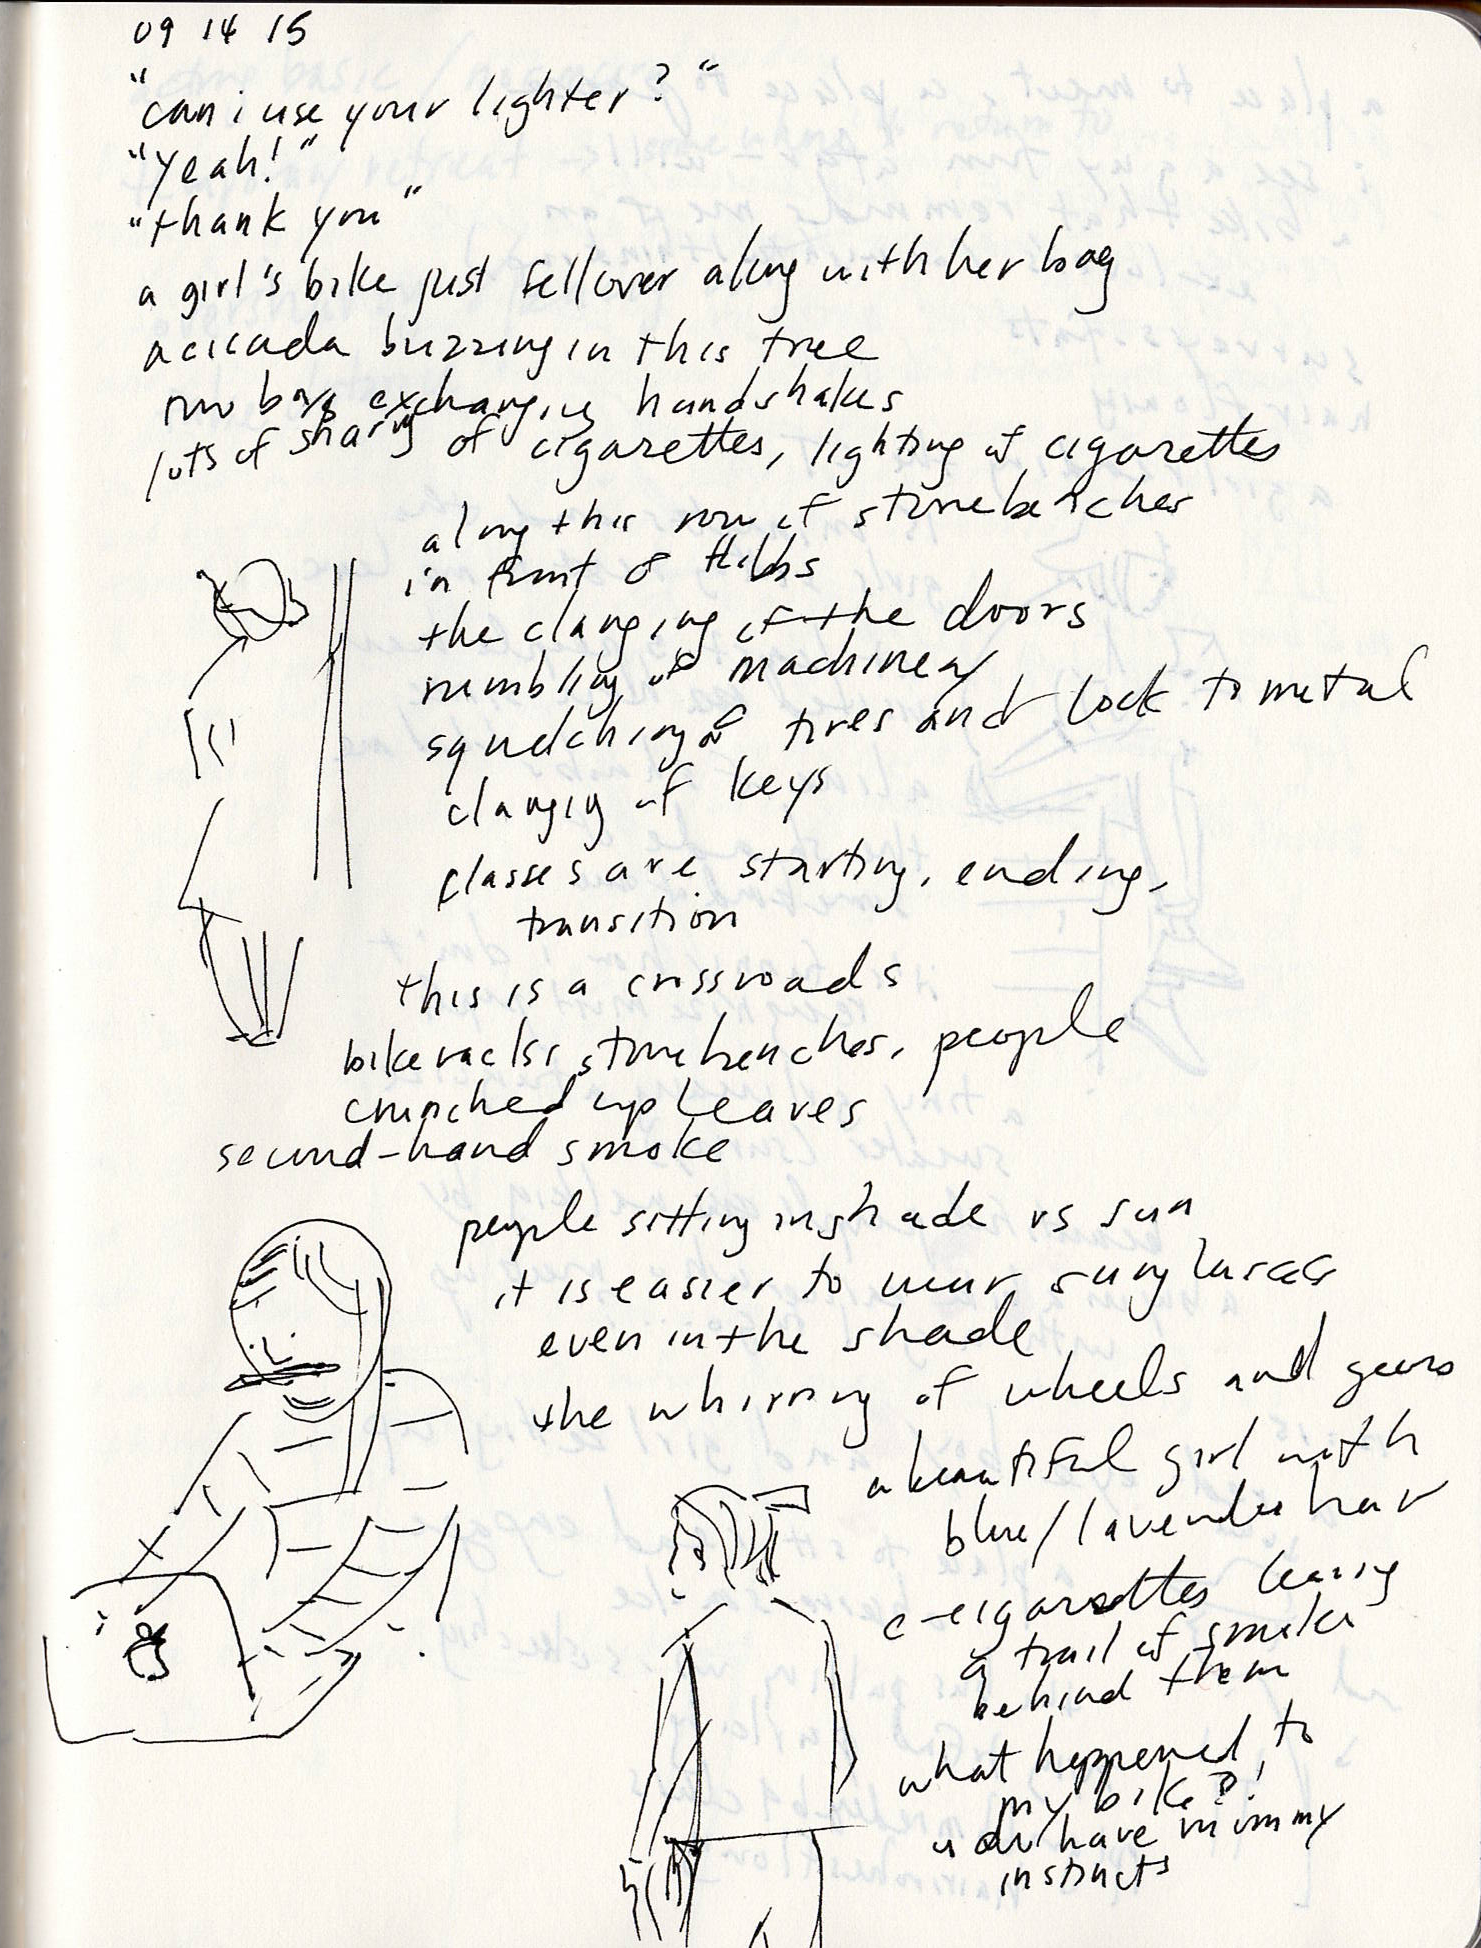 09 14 15
"can i use your lighter?"
"Yeah!"
"thank you"
a girl's bike just fell over along with her bag
a cicada buzzing in this tree
two boys exchanging handshakes
lots of sharing of cigarettes, lighting of cigarettes
along this row of stone benches
in front of Hibbs
the clanging of the doors
rumbling of machinery
squelching of tires and lock to metal
clanging of keys
classes are starting, ending,
transition
this is a crossroads
bike racks, stone benches, people
crunched up leaves
second-hand smoke
people sitting in shade vs sun
it is easier to wear sunglasses
even in the shade
the whirring of wheels and gears
a beautiful girl with
blue/lavender hair
e-cigarettes leaving
a trail of smoke
behind them
what happened to
my bike?!
u do have mommy
instincts